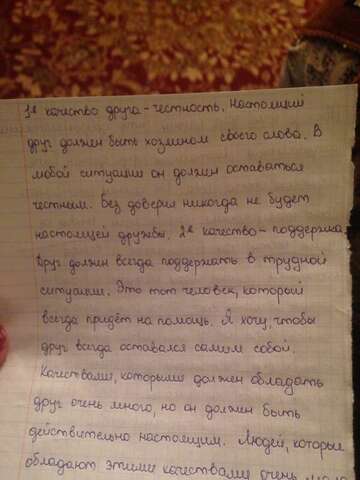 1е качество друга - честность. Настоящий
друг должен быть хозяином своего слова. В
любой ситуации он должен оставаться
честным. Без доверия никогда не будет
настоящей дружбы. 2е качество - поддержка
Друг должен всегда поддержать в трудной
ситуации. Это тот человек, который
всегда придёт на помощь. Я хочу, чтобы
друг всегда оставался самим собой.
Качествами, которыми должен обладать
друг очень много, но он должен быть
действительно настоящим. Людей, которые
обладают этими качествами очень мало